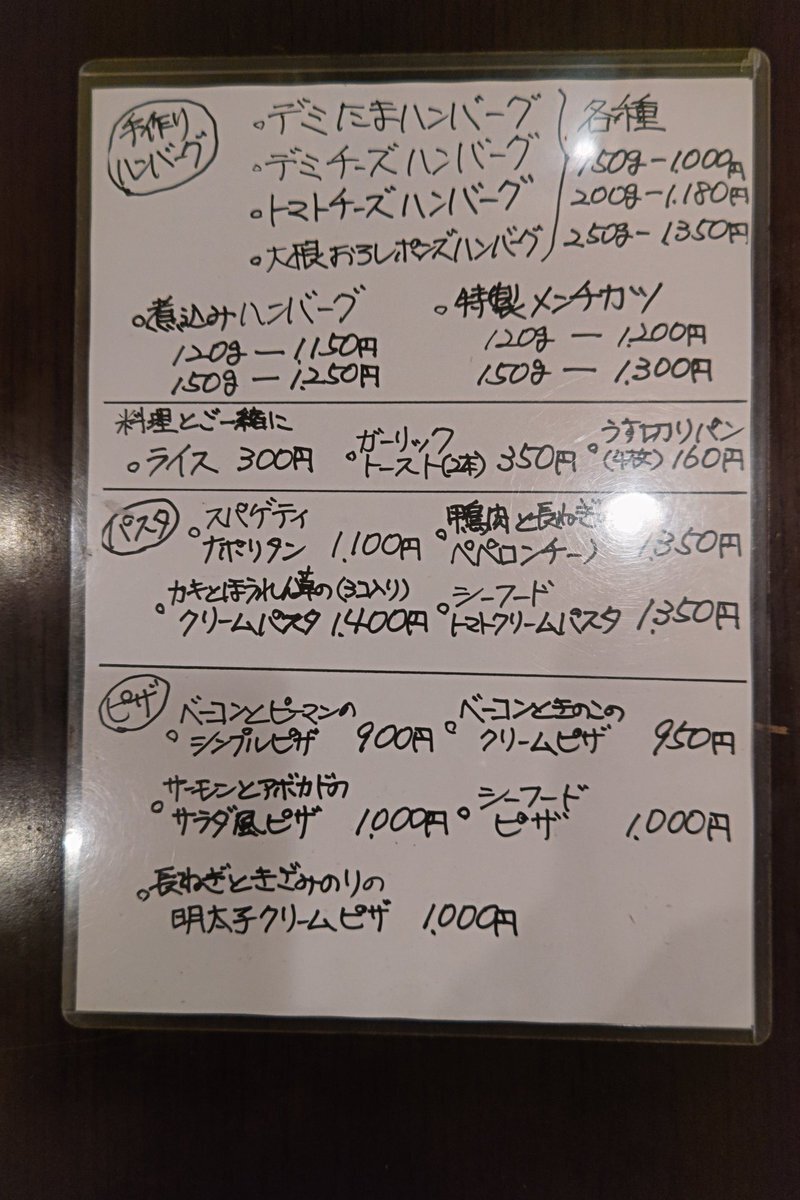 手作り
ハンバーグ
。デミたまハンバーグ
。デミチーズハンバーグ
。トマトチーズハンバーグ
。大根おろしポンズハンバーグ
各種
150g-1.000円
200g-1.180円
250g-1350円
。煮込みハンバーグ
120g-1.150円
150g-1.250円
。特製メンチカツ
120g-1.200円
150g-1.300円
料理とご一緒に
。ライス 300円
。ガーリック
トースト(2本) 350円
。うす切りパン
(4枚) 160円
パスタ
。スパゲティ
ナポリタン 1.100円
。鴨肉と長ねぎ
ペペロンチーノ 1.350円
。カキとほうれん草の(3コ入り)
クリームパスタ 1.400円
。シーフード
トマトクリームパスタ 1.350円
ピザ
。ベーコンとピーマンの
シンプルピザ 900円
。ベーコンときのこの
クリームピザ 950円
。サーモンとアボカドの
サラダ風ピザ 1.000円
。シーフード
ピザ 1.000円
。長ねぎときざみのりの
明太子クリームピザ 1.000円